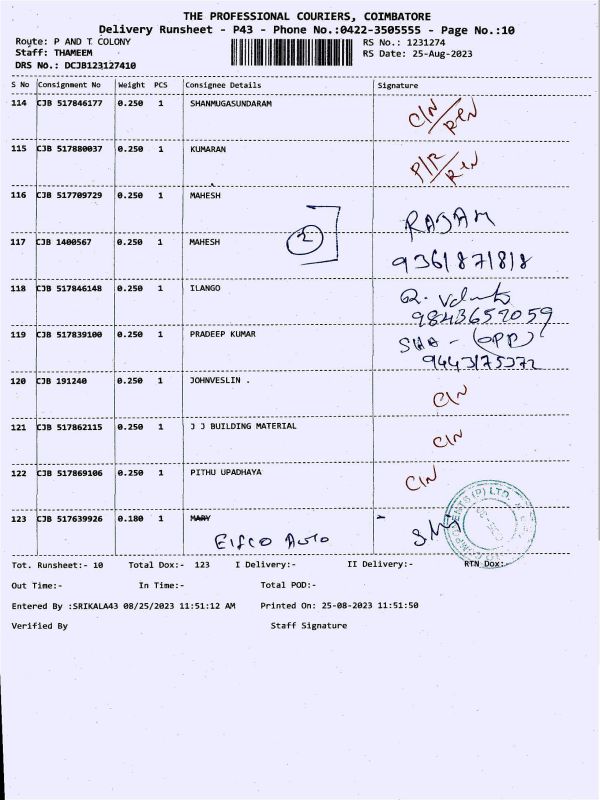 THE PROFESSIONAL COURIERS, COIMBATORE
Delivery Runsheet - P43 - Phone No.:0422-3505555 - Page No.:10
Route: P AND T COLONY RS No.: 1231274
Staff: THAMEEM RS Date: 25-Aug-2023
DRS No.: DCJB123127410
S No Consignment No Weight PCS Consignee Details Signature
114 CJB 517846177 0.250 1 SHANMUGASUNDARAM C/N
115 CJB 517880037 0.250 1 KUMARAN
116 CJB 517709729 0.250 1 MAHESH RAJAM
2
117 CJB 1400567 0.250 1 MAHESH 9361871818
118 CJB 517846148 0.250 1 ILANGO
9843652059
119 CJB 517839100 0.250 1 PRADEEP KUMAR SHA - (OPP)
120 CJB 191240 0.250 1 JOHNVESLIN . C/N
121 CJB 517862115 0.250 1 J J BUILDING MATERIAL C/N
122 CJB 517869106 0.250 1 PITHU UPADHAYA C/N
123 CJB 517639926 0.180 1 MARY
Elfco Auto
(P) LTD.
Tot. Runsheet:- 10 Total Dox:- 123 I Delivery:- II Delivery:- RTN Dox:-
Out Time:- In Time:- Total POD:-
Entered By :SRIKALA43 08/25/2023 11:51:12 AM Printed On: 25-08-2023 11:51:50
Verified By Staff Signature